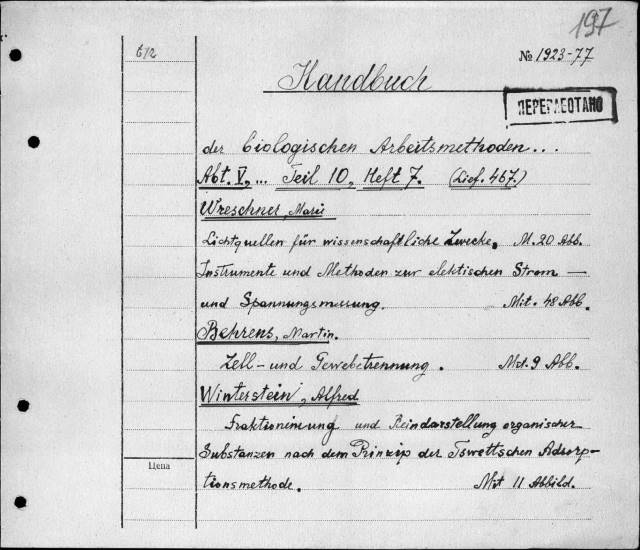 197
672
№ 1923-77
Handbuch
ПЕРЕРАБОТАНО
der biologischen Arbeitsmethoden...
Abt. V, ... Teil 10, Heft 7. (Lief. 467.)
Wreschner, Marie
Lichtquellen für wissenschaftliche Zwecke, M. 20 Abb.
Instrumente und Methoden zur elektischen Strom —
und Spannungsmessung. Mit. 48 Abb.
Behrens, Martin.
Zell- und Gewebetrennung. Mit. 9 Abb.
Winterstein, Alfred
Fraktionierung und Reindarstellung organischer
Substanzen nach dem Prinzip der Tswettschen Adsorp-
Цена
tionsmethode. Mit 11 Abbild.